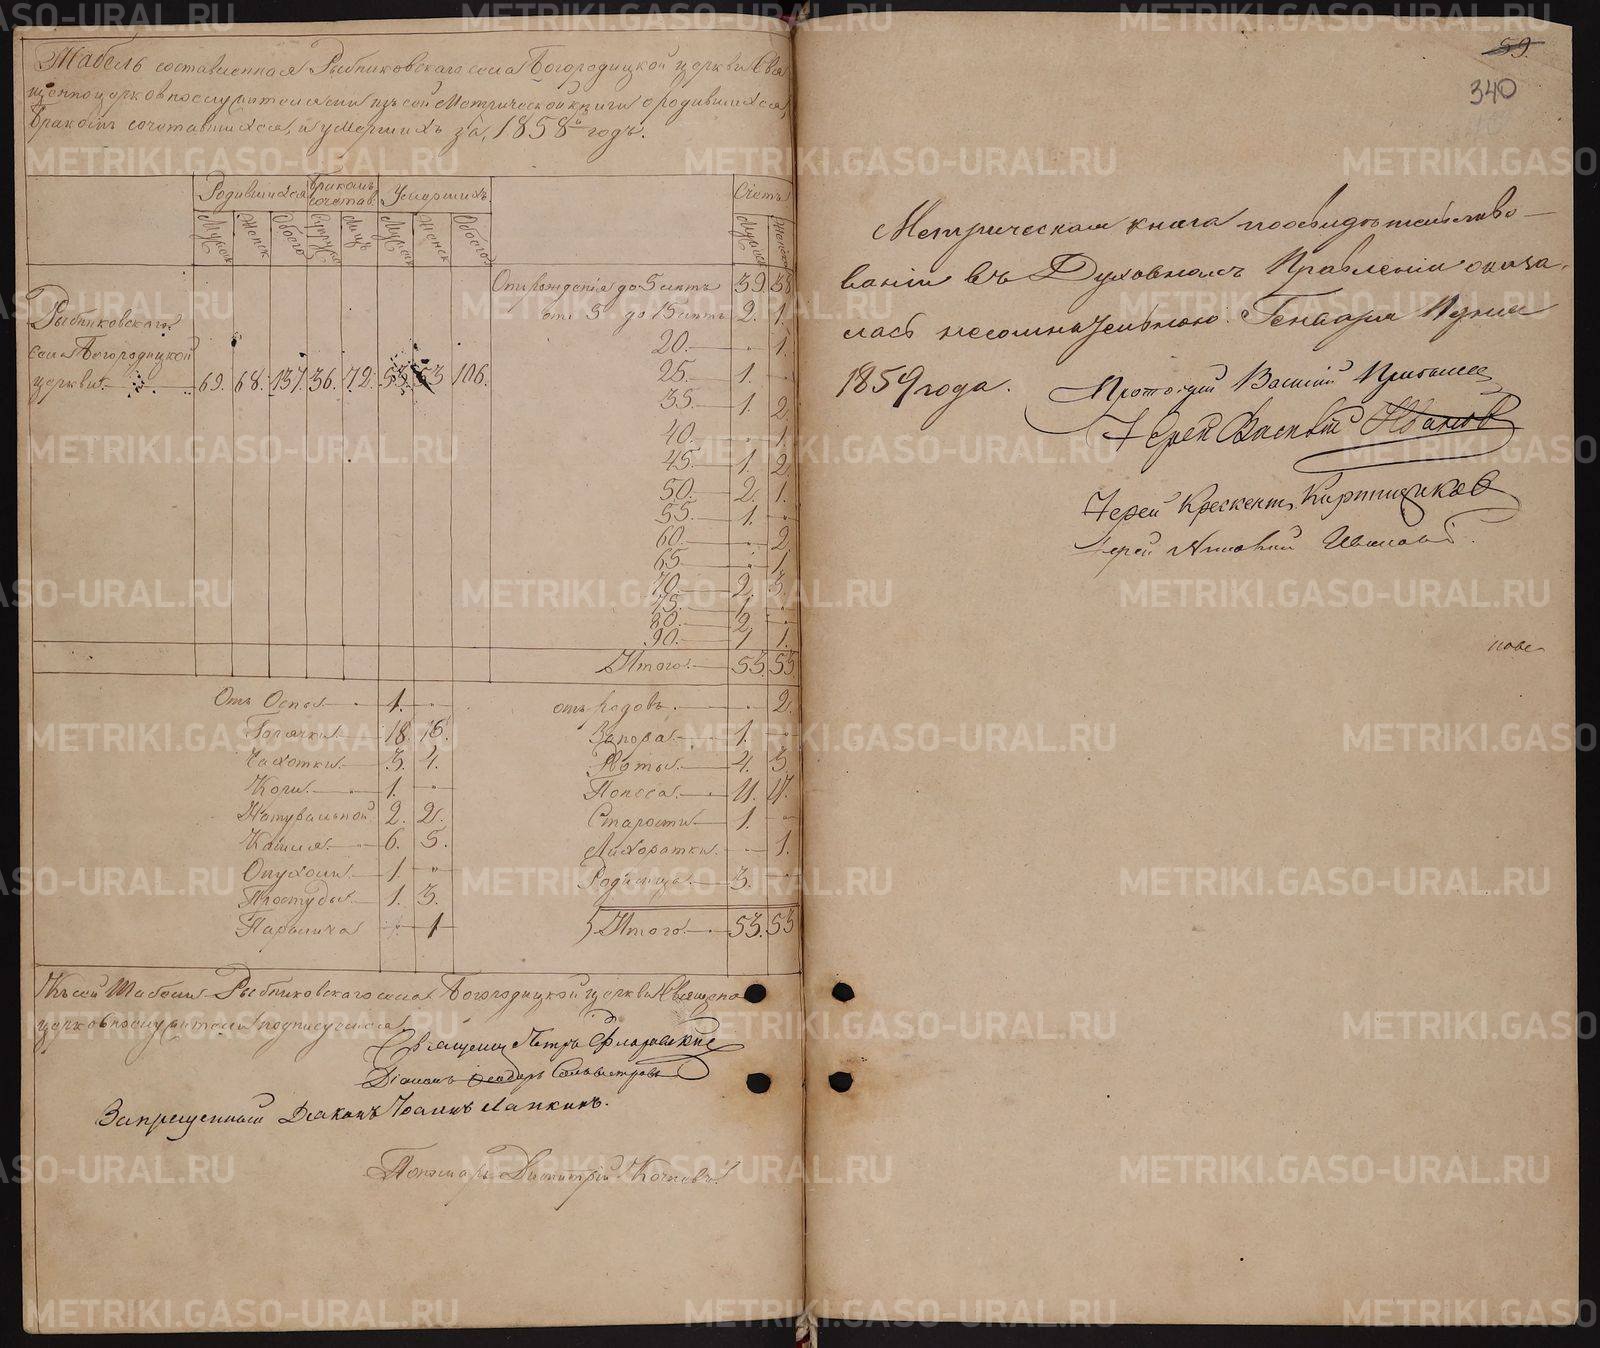 Табель составленная Рыбниковскаго села Богородицкой церкви Свя
щенноцерковнослужителями изъ сей Метрической книги о родившихся,
Бракомъ сочетавшихся, и умершихъ за, 1858й годъ.
Родившихся Бракомъ сочетав. Умершихъ Счетъ
Мужск Женск Обоего Супруж Лицъ Мужск Женск Обоего Мужск Женск
Рыбниковскаго
села Богородицкой
церкви. 69. 68. 137. 36. 72. 53. 53 106.
Отъ рожденія до 5 летъ 39. 38
отъ 5 до 15 летъ 2. 1.
20. " 1.
25. 1. "
35. 1. 2
40. " 1.
45. 1. 2
50. 2. 1.
55. 1. "
60. " 2
65. " 1
70. 2. 3
75. 1. "
80. 2. "
90. 1 1.
Итого. 53. 53
Отъ Оспы 1. "
Горячки 18. 16.
Чахотки 3. 4.
Коги. 1. "
Натуральной 2. 2.
Кашля. 6. 5.
Опухоли 1. "
Простуды 1. 3.
Паралича 1
отъ Родовъ. " 2.
Запора. 1. "
Рвоты. 4. 3.
Поноса. 11. 17.
Старости 1. "
Лихоратки. " 1.
Родимца. 3. "
Итого. 53. 53
Къ сей Табели Рыбниковскаго села Богородицкой церкви Священно
церковнослужители подписуемся.
Священник Петръ Флоровскій
Діаконъ Ѳеодоръ Сильвестровъ
Запрещенный Діаконъ Іоаннъ Лапкинъ.
Пономарь Димитрій
59.
340
Метрическая книга по освидѣтельство-
ваніи въ Духовномъ Правленіи оказа-
лась несомнительною. Генваря дня
1859 года. Протоіерей Василій
Іерей Ивановъ
Іерей Крескентъ Кирпищиковъ
Іерей Ивановъ.
METRIKI.GASO-URAL.RU